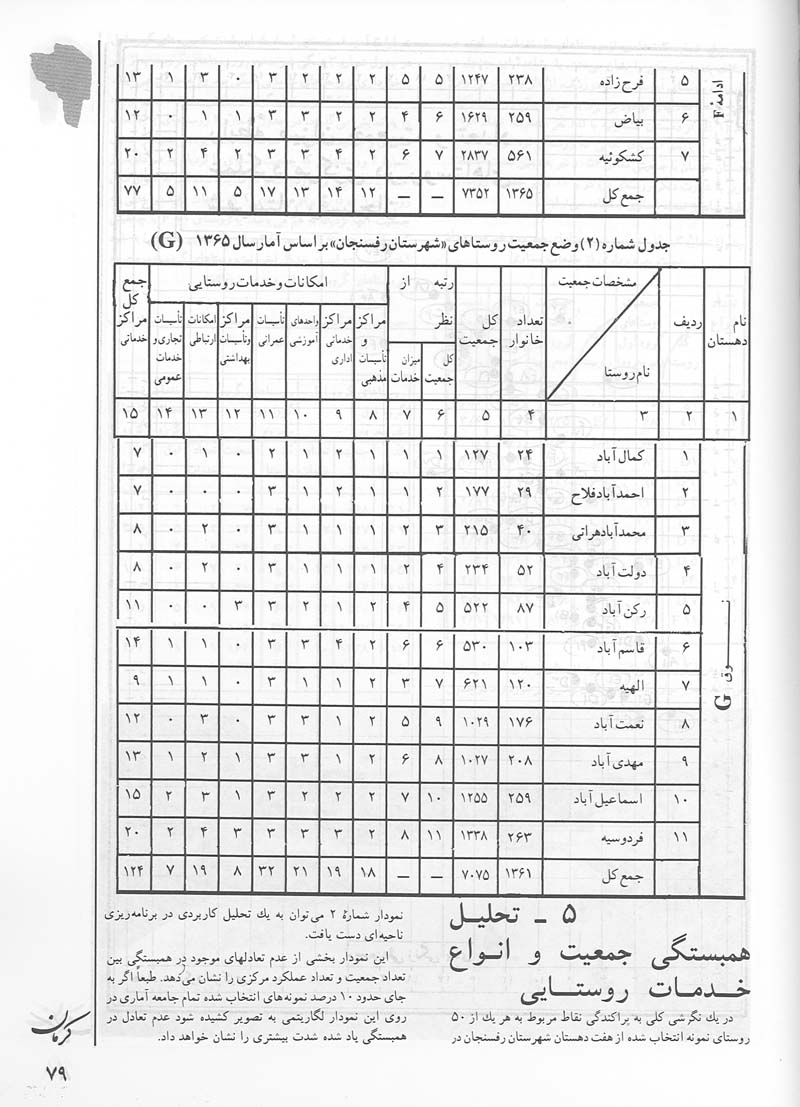 ادامه F
۵ فرح‌زاده ۲۳۸ ۱۲۴۷ ۵ ۵ ۲ ۲ ۲ ۳ ۰ ۳ ۱ ۱۳
۶ بیاض ۲۵۹ ۱۶۲۹ ۶ ۴ ۲ ۲ ۳ ۳ ۱ ۱ ۰ ۱۲
۷ کشکوئیه ۵۶۱ ۲۸۳۷ ۷ ۶ ۲ ۴ ۳ ۳ ۲ ۴ ۲ ۲۰
جمع کل ۱۳۶۵ ۷۳۵۲ — — ۱۲ ۱۴ ۱۳ ۱۷ ۵ ۱۱ ۵ ۷۷
جدول شماره (۲) وضع جمعیت روستاهای «شهرستان رفسنجان» بر اساس آمار سال ۱۳۶۵ (G)
نام دهستان
ردیف
مشخصات جمعیت
نام روستا
تعداد خانوار
کل جمعیت
رتبه از نظر
کل جمعیت
میزان خدمات
امکانات و خدمات روستایی
مراکز و تأسیسات مذهبی
مراکز خدماتی اداری
واحدهای آموزشی
تأسیسات عمرانی
مراکز و تأسیسات بهداشتی
امکانات ارتباطی
تأسیسات تجاری و خدمات عمومی
جمع کل مراکز خدماتی
۱ ۲ ۳ ۴ ۵ ۶ ۷ ۸ ۹ ۱۰ ۱۱ ۱۲ ۱۳ ۱۴ ۱۵
نوق G
۱ کمال آباد ۲۴ ۱۲۷ ۱ ۱ ۱ ۲ ۱ ۲ ۰ ۱ ۰ ۷
۲ احمدآباد فلاح ۲۹ ۱۷۷ ۲ ۱ ۱ ۲ ۱ ۳ ۰ ۰ ۰ ۷
۳ محمدآباد هراتی ۴۰ ۲۱۵ ۳ ۲ ۱ ۱ ۱ ۳ ۰ ۲ ۰ ۸
۴ دولت آباد ۵۲ ۲۳۴ ۴ ۲ ۱ ۱ ۱ ۳ ۰ ۲ ۰ ۸
۵ رکن آباد ۸۷ ۵۲۲ ۵ ۴ ۲ ۱ ۲ ۳ ۳ ۰ ۰ ۱۱
۶ قاسم آباد ۱۰۳ ۵۳۰ ۶ ۶ ۲ ۴ ۳ ۳ ۰ ۱ ۱ ۱۴
۷ الهیه ۱۲۰ ۶۲۱ ۷ ۳ ۲ ۱ ۱ ۳ ۰ ۱ ۱ ۹
۸ نعمت آباد ۱۷۶ ۱۰۲۹ ۹ ۵ ۲ ۱ ۳ ۳ ۰ ۳ ۰ ۱۲
۹ مهدی آباد ۲۰۸ ۱۰۲۷ ۸ ۶ ۲ ۱ ۳ ۳ ۱ ۲ ۱ ۱۳
۱۰ اسماعیل آباد ۲۵۹ ۱۲۵۵ ۱۰ ۷ ۲ ۲ ۲ ۳ ۱ ۳ ۲ ۱۵
۱۱ فردوسیه ۲۶۳ ۱۳۳۸ ۱۱ ۸ ۲ ۳ ۳ ۳ ۳ ۴ ۲ ۲۰
جمع کل ۱۳۶۱ ۷۰۷۵ — — ۱۸ ۱۹ ۲۱ ۳۲ ۸ ۱۹ ۷ ۱۲۴
۵ ـ تحلیل
همبستگی جمعیت و انواع
خدمات روستایی
در یك نگرشی کلی به پراکندگی نقاط مربوط به هر یك از ۵۰
روستای نمونه انتخاب شده از هفت دهستان شهرستان رفسنجان در
نمودار شمارهٔ ۲ می‌توان به یك تحلیل کاربردی در برنامه‌ریزی
ناحیه‌ای دست یافت.
این نمودار بخشی از عدم تعادلهای موجود در همبستگی بین
تعداد جمعیت و تعداد عملکرد مرکزی را نشان می‌دهد. طبعاً اگر به
جای حدود ۱۰ درصد نمونه‌های انتخاب شده تمام جامعه آماری در
روی این نمودار لگاریتمی به تصویر کشیده شود عدم تعادل در
همبستگی یاد شده شدت بیشتری را نشان خواهد داد.
کرمان
۷۹